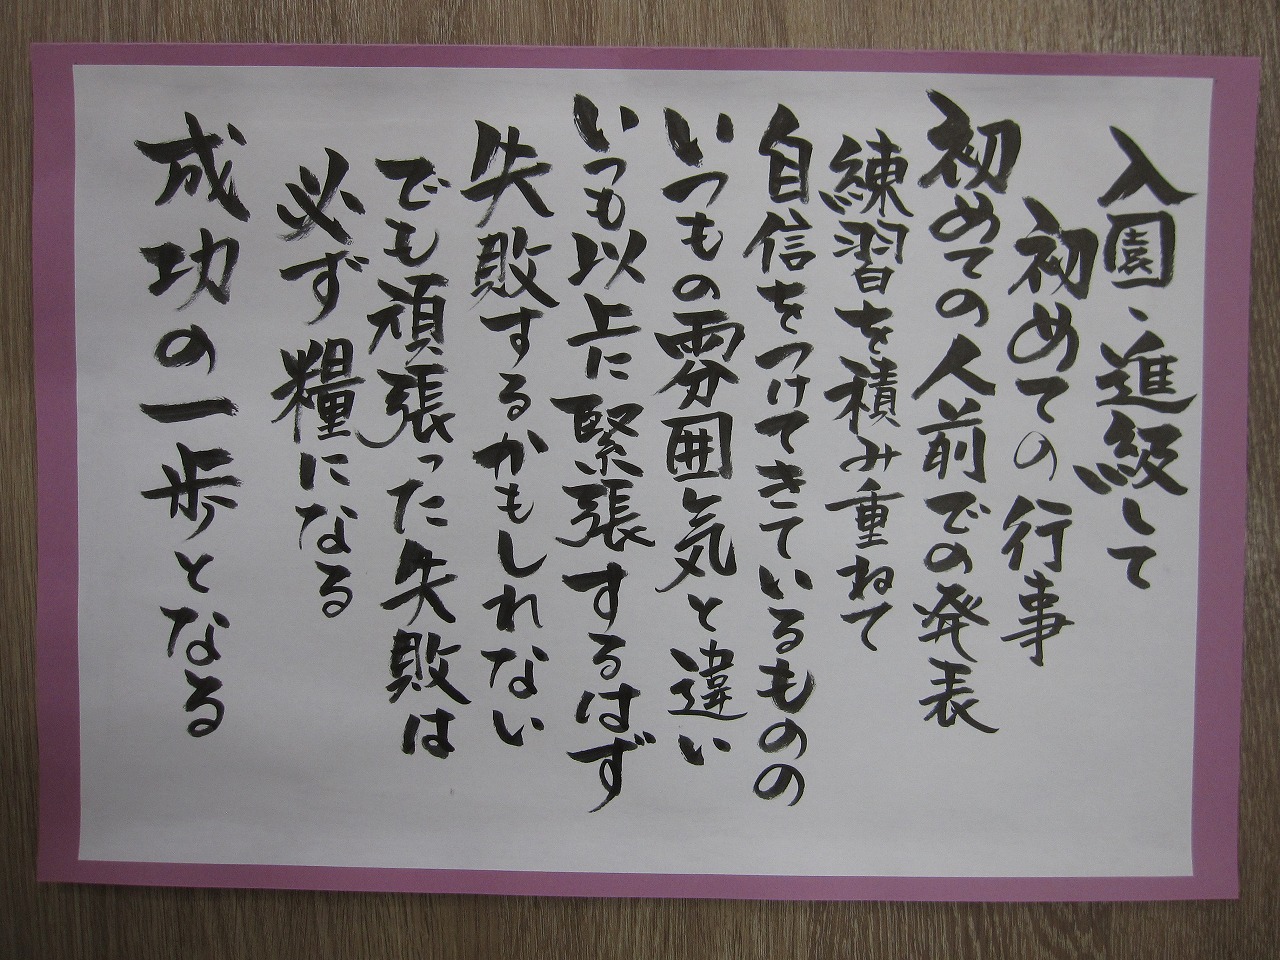 入園、進級して
初めての行事
初めての人前での発表
練習を積み重ねて
自信をつけてきているものの
いつもの雰囲気と違い
いつも以上に緊張するはず
失敗するかもしれない
でも頑張った失敗は
必ず糧になる
成功の一歩となる